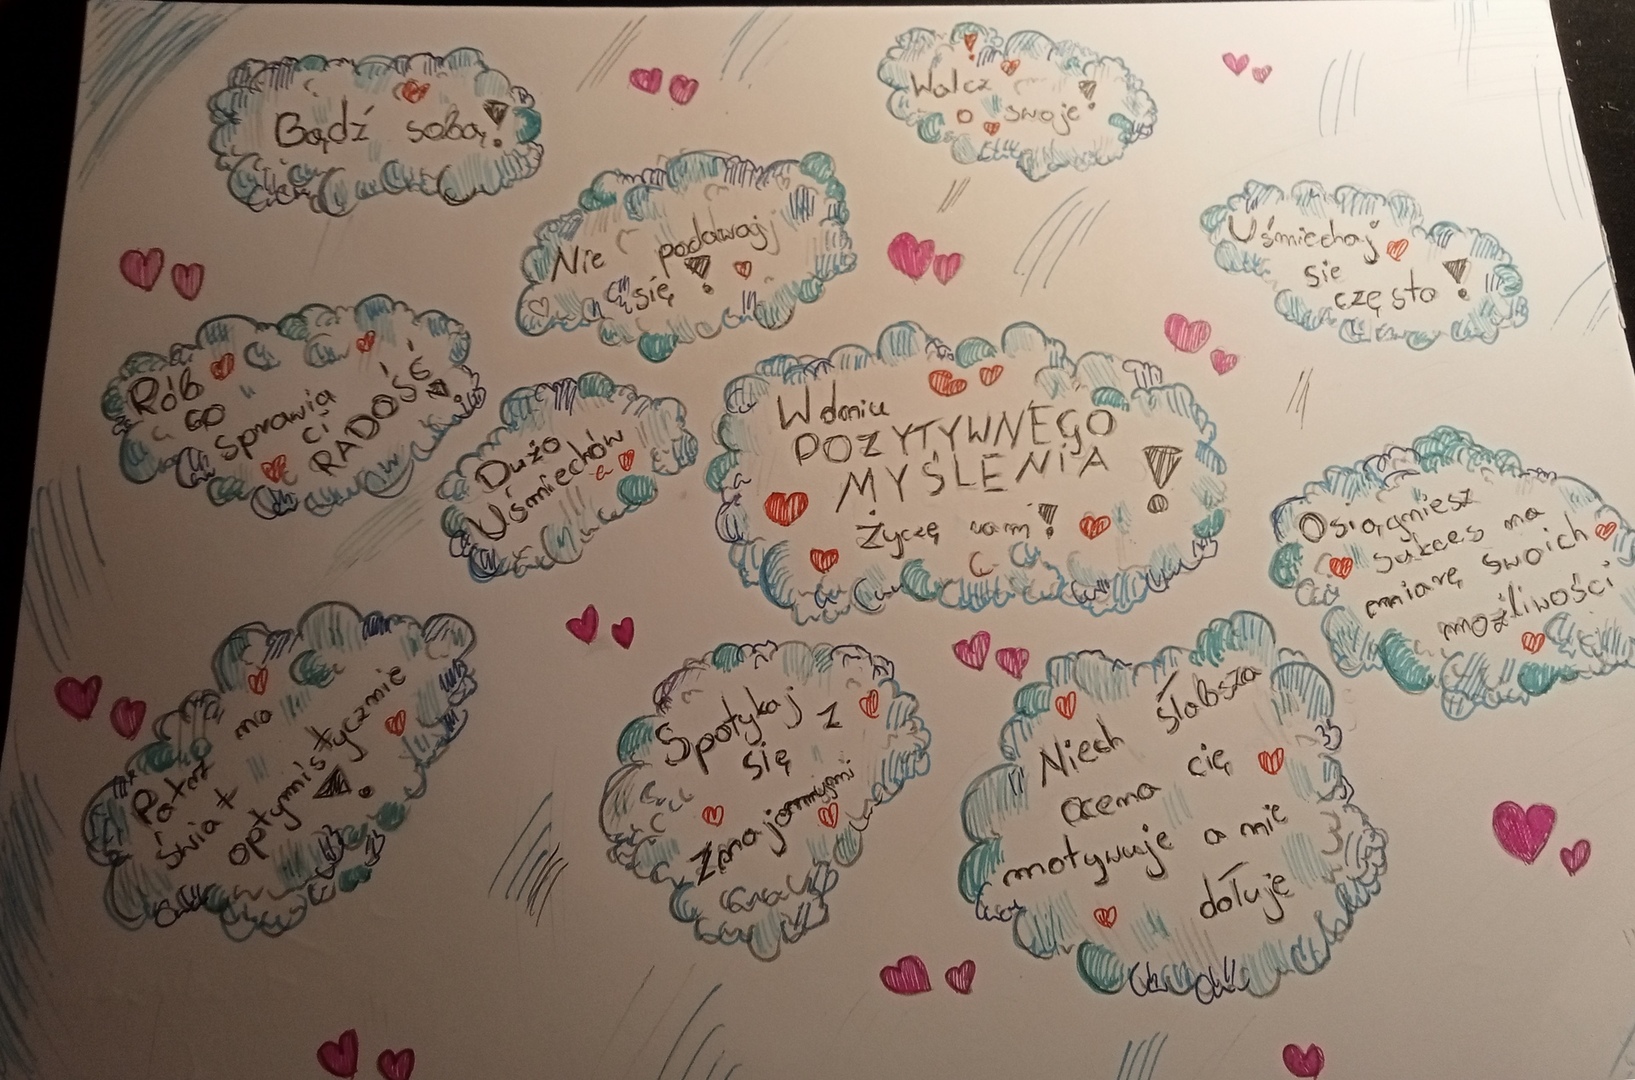 Bądź sobą!
Walcz
o swoje!
Nie podawaj
się!
Uśmiechaj
sie
często!
Rób
co
sprawia
ci
RADOŚĆ!
Dużo
Uśmiechów
W dniu
POZYTYWNEGO
MYŚLENIA!
życzę wam!
Osiągniesz
sukces na
miarę swoich
możliwości
Patrz na
świat
optymistycznie!
Spotykaj
się z
Znajomymi
Niech słabsza
ocena cię
motywuje a nie
dołuje